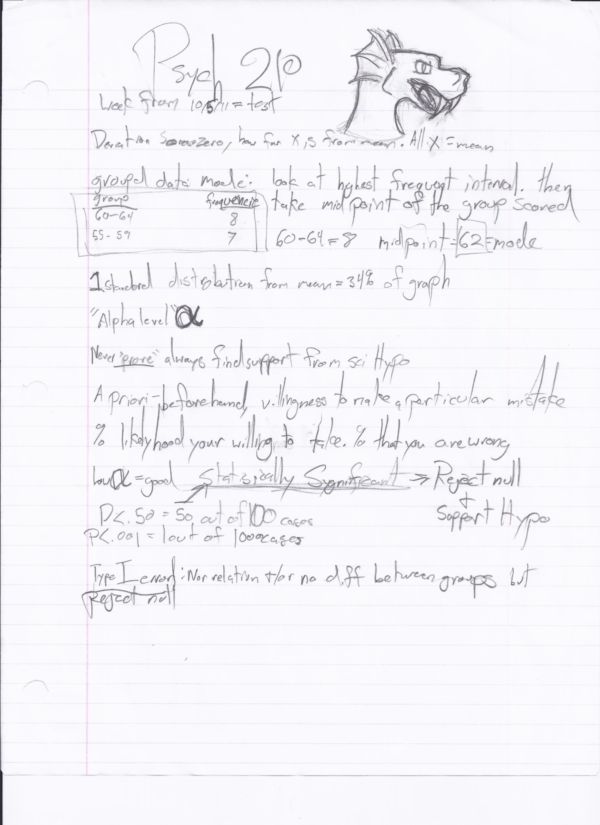 Psych 20
Week from 10/5/11 = test
zero, how far X is from mean. All X = mean
mode: look at highest frequent interval. then
group frequencie take midpoint of the group scored
60-64 8
55-59 7 60-64=8 midpoint=62=mode
1 distribution from mean = 34% of graph
"Alpha level" α
Never "prove" always find support from sci Hypo
A priori - beforehand, villingness to make a particular mistake
% likelyhood your willing to take. % that you are wrong
Low α = good Statisically Significant → Reject null
P<.50 = 50 out of 100 cases + Support Hypo
P<.001 = 1 out of 1000 cases
Type I error: Nor relation +/or no diff between groups but
Reject null